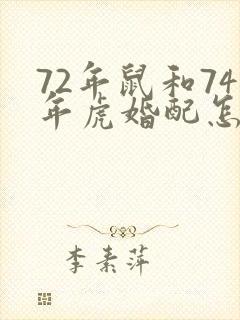 72年鼠和74
年虎婚配怎
李素萍